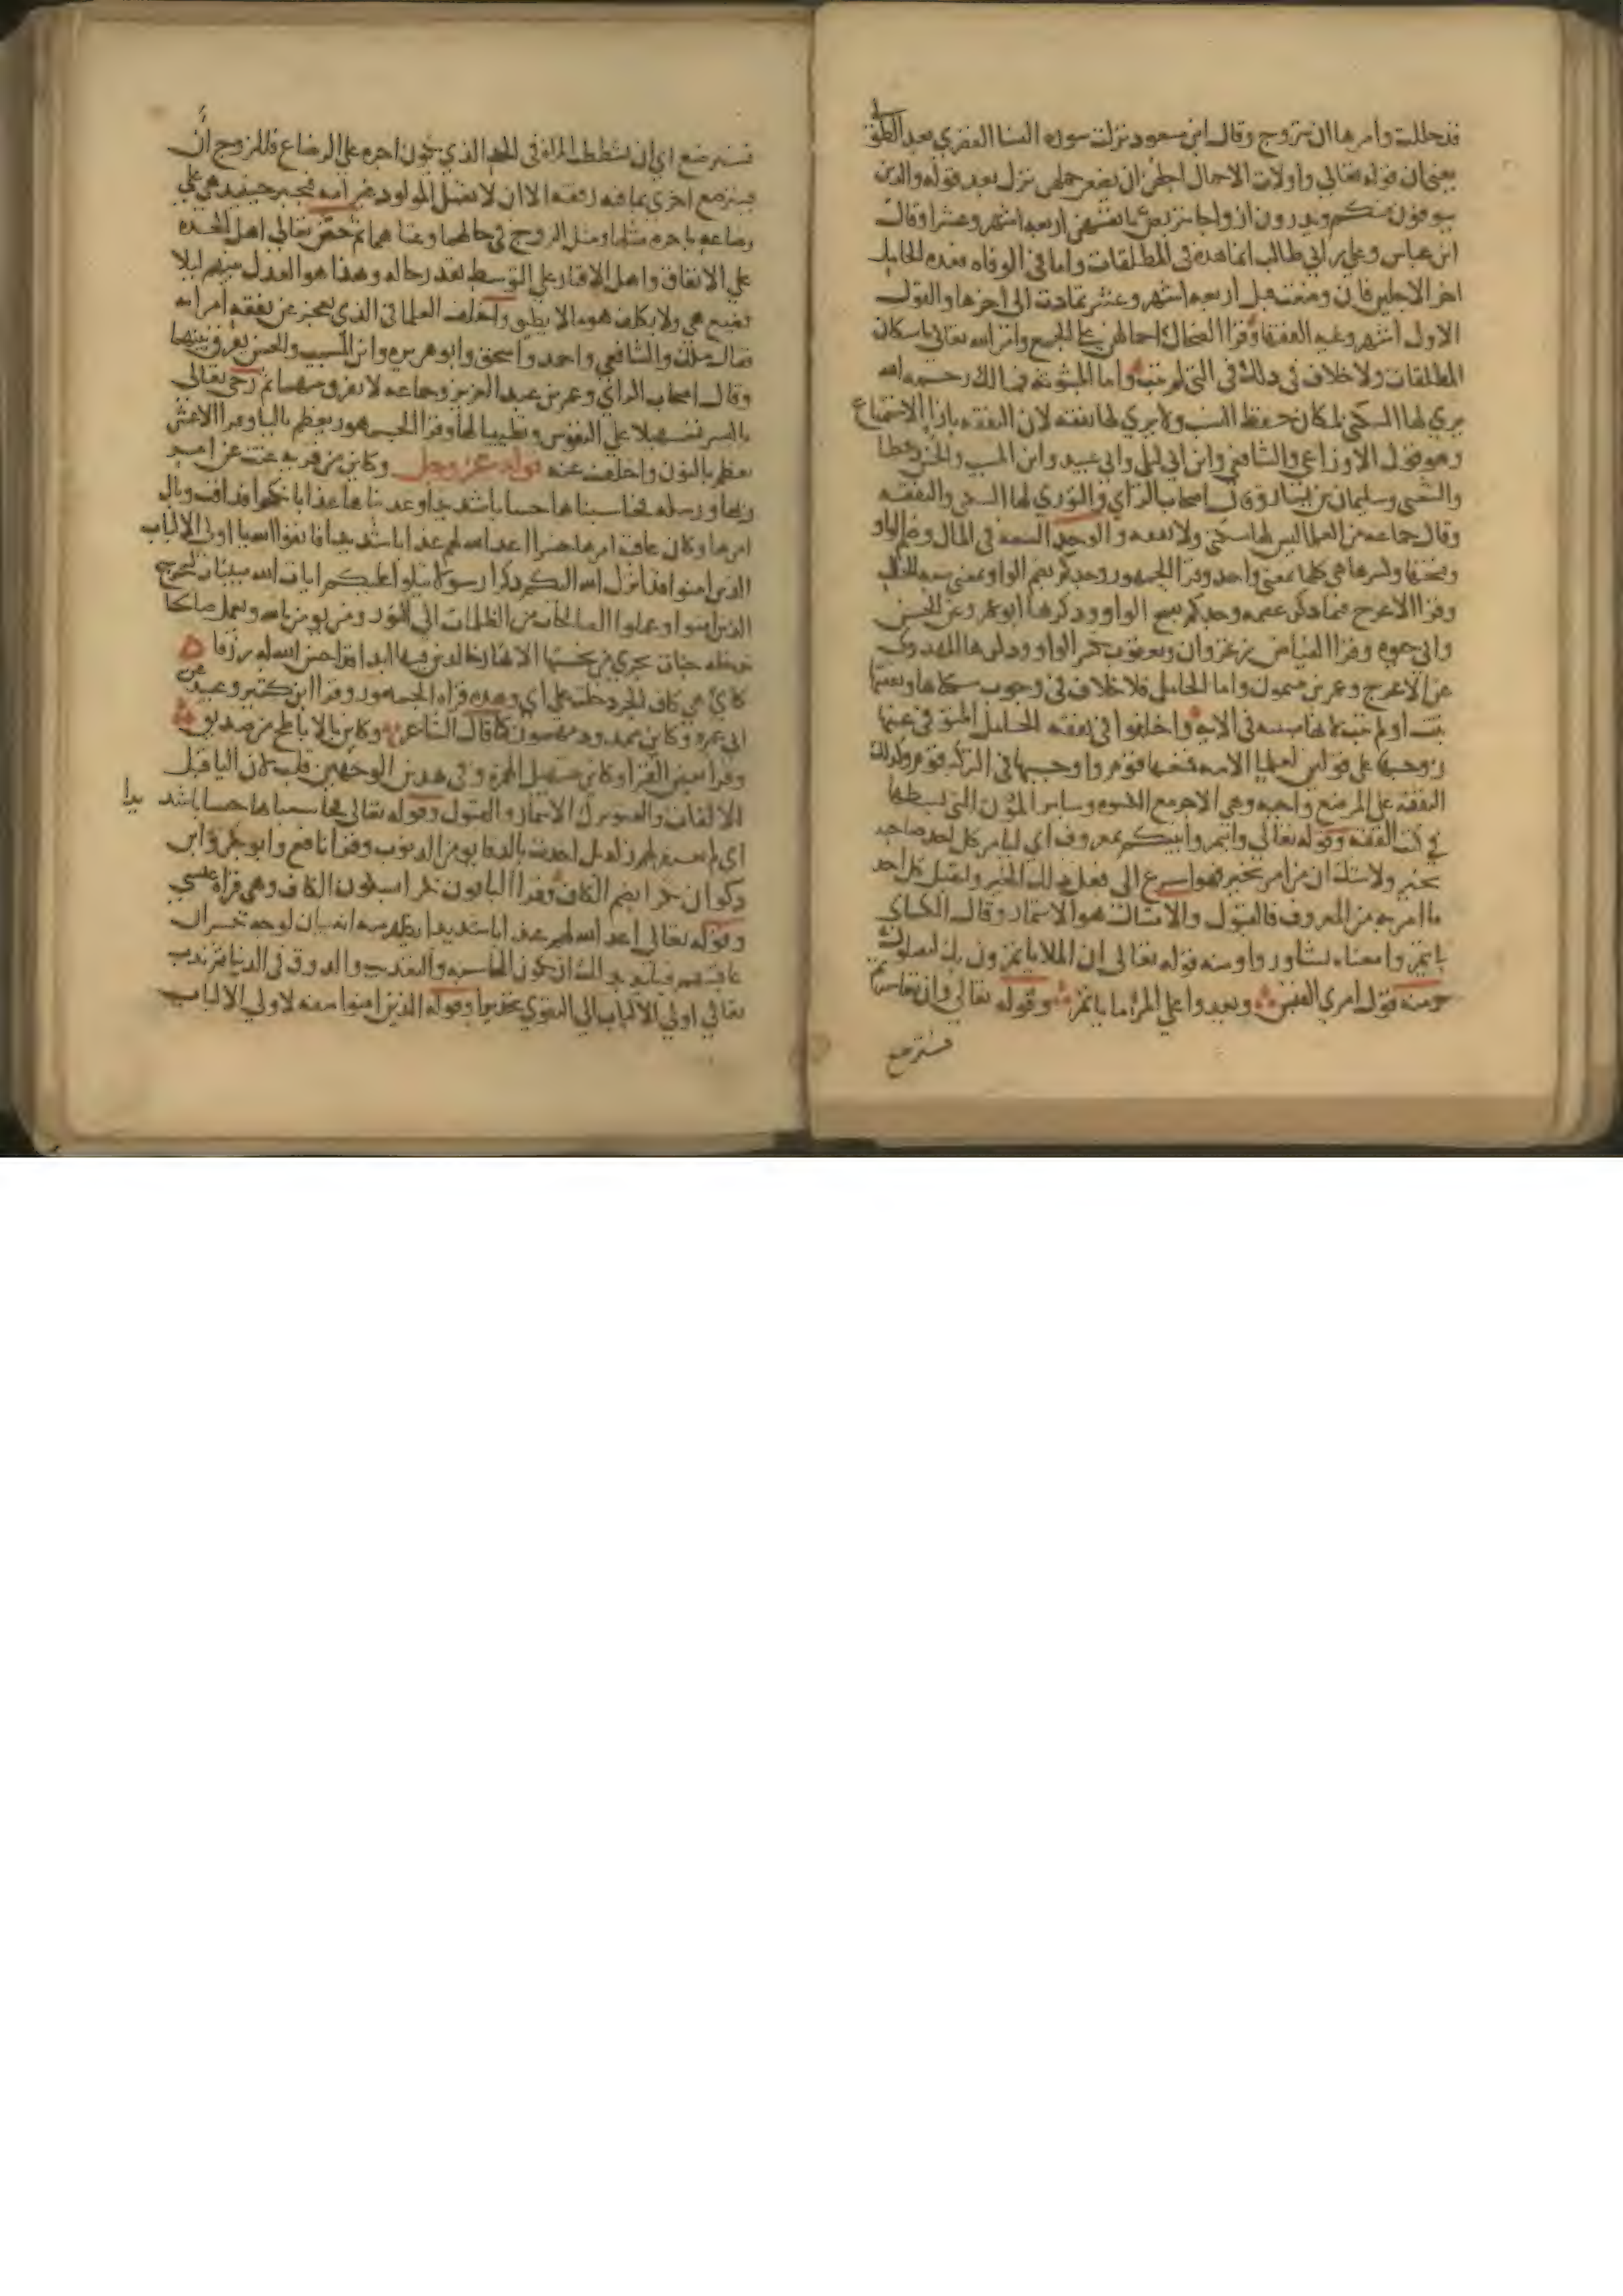 قد حللت وامرها ان تتزوج وقال ابن مسعود نزلت سورة النسا القصري بعد الطولى
يعني ان قوله تعالي واولات الاحمال اجلهن ان يضعن حملهن نزل بعد قوله والذين
يتوفون منكم ويذرون ازواجا يتربصن بانفسهن اربعه اشهر وعشرا وقال
ابن عباس وعلي بن ابي طالب انما هذه في المطلقات واما في الوفاه فعده الحامل
اخر الاجلين فان وضعت قبل اربعه اشهر وعشر تمادت الى اخرها والقول
الاول اشهر وعليه الفقها وقرا الضحاك احمالهن على الجمع وامر الله تعالى باسكان
المطلقات ولا خلاف في ذلك في التي لم تبت واما المبتوته فمالك رحمه الله
يري لها السكنى لمكان حفظ النسب ولا يري لها نفقه لان النفقه بازا الاستمتاع
وهو قول الاوزاعي والشافعي وابن ابي ليلي وابي عبيد وابن المسيب والحسن وعطا
والشعبي وسليمان بن يسار وقال اصحاب الراي والثوري لها السكنى والنفقه
وقال جماعه من العلما ليس لها سكنى ولا نفقه والوجد السعه في المال وضم الواو
وفتحها وكسرها هي كلها بمعنى واحد وقرا الجمهور وجدكم بضم الواو بمعنى سعه الحال
وقرا الاعرج فيما ذكر عصمه وجدكم بفتح الواو وذكرها ابو عمرو عن الحسن
وابي حيوه وقرا الفياض بن غزوان ويعقوب بكسر الواو وذكرها المهدوي
عن الاعرج وعمر بن ميمون واما الحامل فلا خلاف في وجوب سكناها ونفقتها
بتت او لم تبت لانها مبينه في الايه واختلفوا في نفقه الحامل المتوفى عنها
زوجها على قولين لعلما الامه فمنعها قوم واوجبها في التركه قوم وكذلك
النفقه على المرضع واجبه وهي الاجر مع الكسوه وساير المؤن التي بسطها
في كتب الفقه وقوله تعالي واتمروا بينكم بمعروف اي ليامر كل احد صاحبه
بخير ولا شك ان من امر بخير فهو اسرع الى فعل ذلك الخير وليقبل كل احد
ما امر به من المعروف فالقبول والامتثال هو الايتمار وقال الكساي
ياتمروا معناه تشاوروا ومنه قوله تعالى ان الملا ياتمرون بك ليقتلوك
ومنه قول امري القيس ويعدوا على المرء ما ياتمر وقوله تعالي وان تعاسرتم
فسترضع
فسترضع اي ان تشططت المراة في الحد الذي يكون اجره على الرضاع فللزوج ان
يسترضع اخرى بما فيه رفقه الا ان لا يقبل المولود غير امه فتجبر حينئذ هي على
رضاعه باجره مثلها ومثل الزوج في حالهما وغناهما ثم حض تعالي اهل الجده
على الانفاق واهل الاقتار على التوسط بقدر حاله وهذا هو العدل بينهم ليلا
تضيع هي ولا يكلف هو ما لا يطيق واختلف العلما في الذي يعجز عن نفقه امراته
فقال مالك والشافعي واحمد واسحق وابو هريره وابن المسيب والحسن يفرق بينهما
وقال اصحاب الراي وعمر بن عبد العزيز وجماعه لا يفرق بينهما ثم رجى تعالى
باليسر تسهيلا على النفوس وتطييبا لها وقرا الجمهور يعظم باليا وقرا الاعمش
نعظم بالنون واختلف عنه قوله عز وجل وكاين من قريه عتت عن امر
ربها ورسله فحاسبناها حسابا شديدا وعذبناها عذابا نكرا فذاقت وبال
امرها وكان عاقبه امرها خسرا اعد الله لهم عذابا شديدا فاتقوا الله يا اولي الالباب
الذين امنوا قد انزل الله اليكم ذكرا رسولا يتلوا عليكم ايات الله مبينات ليخرج
الذين امنوا وعملوا الصالحات من الظلمات الى النور ومن يومن بالله ويعمل صالحا
يدخله جنات تجري من تحتها الانهار خالدين فيها ابدا قد احسن الله له رزقا
كاي هي كاف الجر دخلت على اي وهذه قراة الجمهور وقرا ابن كثير وعبيد عن
ابي عمرو وكاين ممدود مهموز كما قال الشاعر وكاين بالاباطح من صديق
وقرا بعض القرا وكاين بتسهيل الهمزة وفي هذين الوجهين قلب لان اليا قبل
الالفات والعتو ترك الايتمار والقبول وقوله تعالى فحاسبناها حسابا شديدا
اي لم تغتفر لهم زله بل اخذت بالدقايق من الذنوب وقرا نافع وابو بكر وابن
ذكوان نكرا بضم الكاف وقرا الباقون نكرا بسكون الكاف وهي قراة عيسى
وقوله تعالى اعد الله لهم عذابا شديدا
تعالي اولي الالباب الى التقوي تحذيرا وقوله الذين امنوا صفه لاولي الالباب